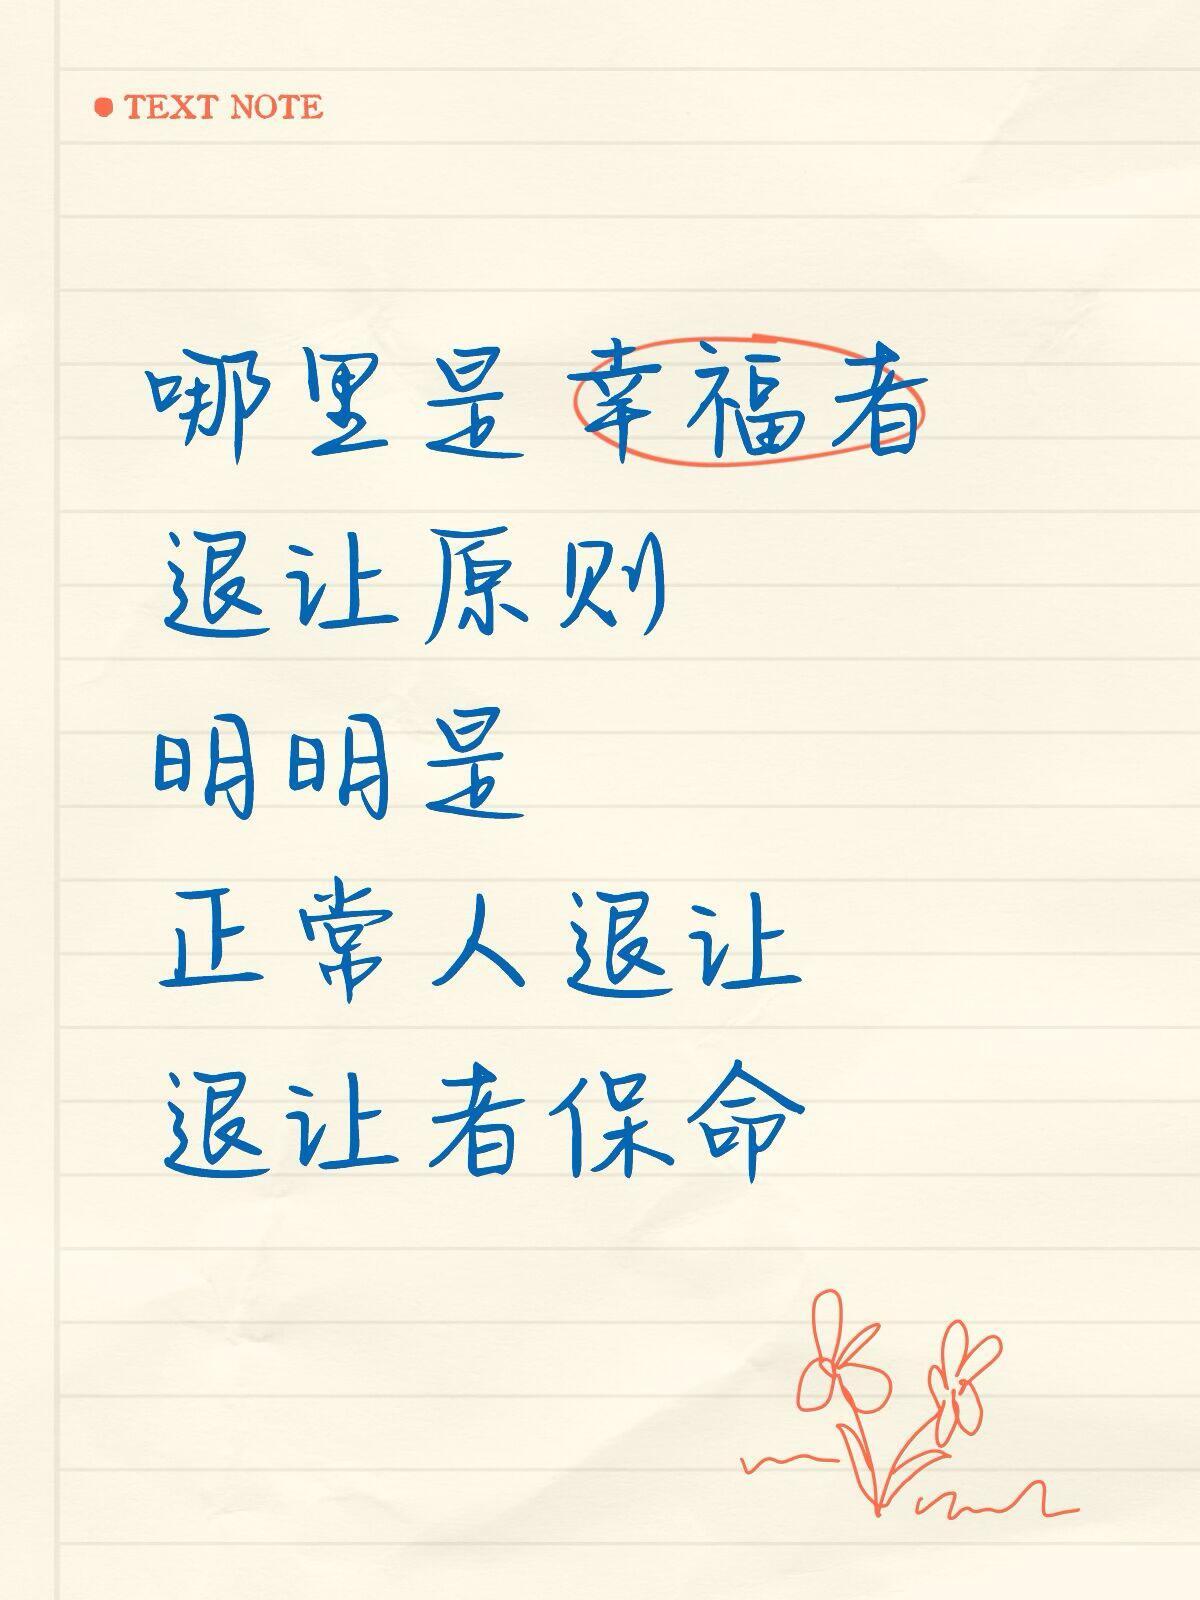 TEXT NOTE
哪里是幸福者
退让原则
明明是
正常人退让
退让者保命